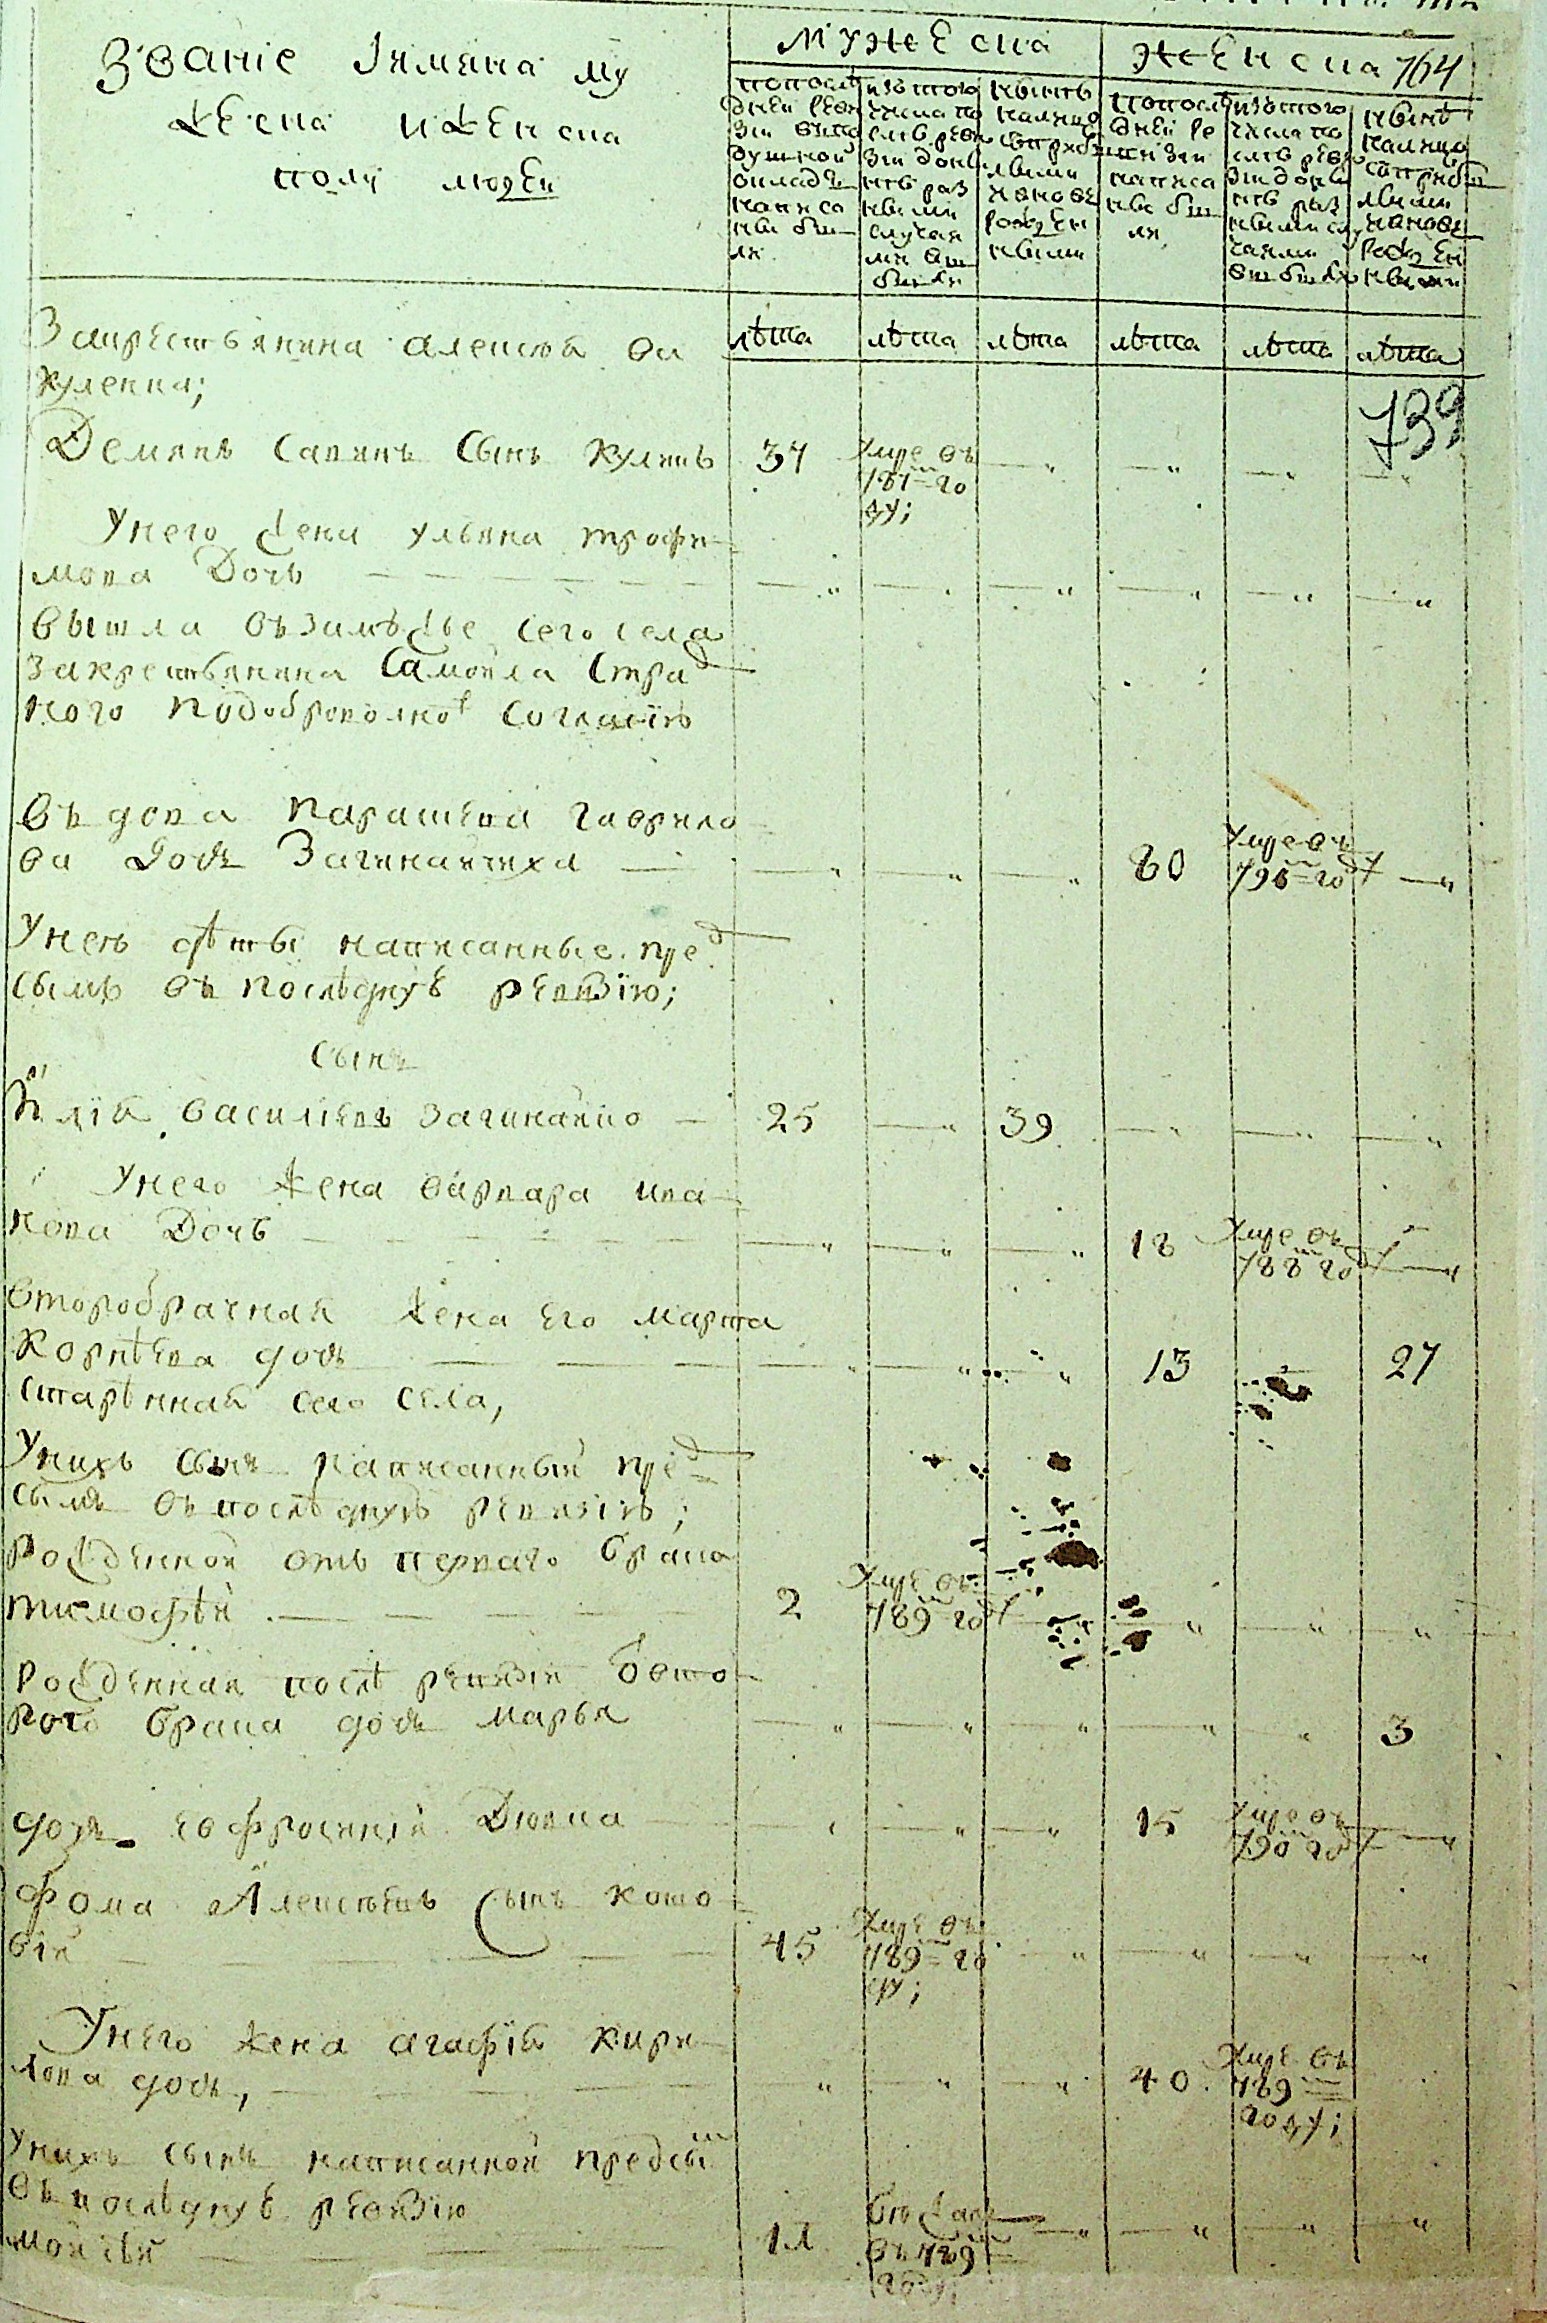 Званіе Імяна му
жеска иженска
полу людеи
мужеска
женска
764
попослѣ
днеи реви
зіи вѣпо
душной
окладъ
написа
ны бы
ли
изътого
числа по
слѣ реви
зіи доны
нѣ раз
ными
случая
ми вы
были
нынѣ
налицо
съприбы
лыми
иновь
рожден
ными
попослѣ
днеи ре
визіи
написа
ны бы
ли
изътого
числа по
слѣ реви
зіи доны
нѣ раз
ными слу
чаями
выбыли
нынѣ
налицо
съприбы
лыми
иновь
рожден
ными
лѣта лѣта лѣта лѣта лѣта лѣта
Закрестьянина Алексѣя
Куленка;
739
Демянъ Савинъ Сынъ Кулинъ 34 умре въ
787 го
ду;
Унего жена ульяна трофи
мова Дочь
вышла въ замѣжье сего села
закрестьянина Самойла Стра
кого подоброволной согласію
въдова Парашева гаврило
ва Дочь Загинайчиха 80 умре въ
796 году
Унею дѣты написанные пред
сымъ въ послѣднуѣ ревизію;
Сынъ
Илія василіевъ Загинайко 25 39
Унего жена варвара ива
нова Дочь 18 умре въ
788 году
второбрачная жена его марта
Корнѣева дочь 13 27
старѣнная сего села,
Унихъ сынъ написанный пред
сымъ въпослѣдную ревизію;
рожденной отъ перваго брака
тимофѣй 2 умре въ
789 году
рожденная послѣ ревизіи вто
рого брака дочь марья 3
дочь ефросинія Дювка 15 умре въ
790 году
фома Алексѣевъ Сынъ кото
вій 45 умре въ
789 го
ду;
Унего жена агафія кири
лова дочь, 40 умре въ
789
году;
Унихъ сынъ написанной предсы
въпослѣднуѣ ревизію
мойсѣй 11 бѣжалъ
въ 789
году;